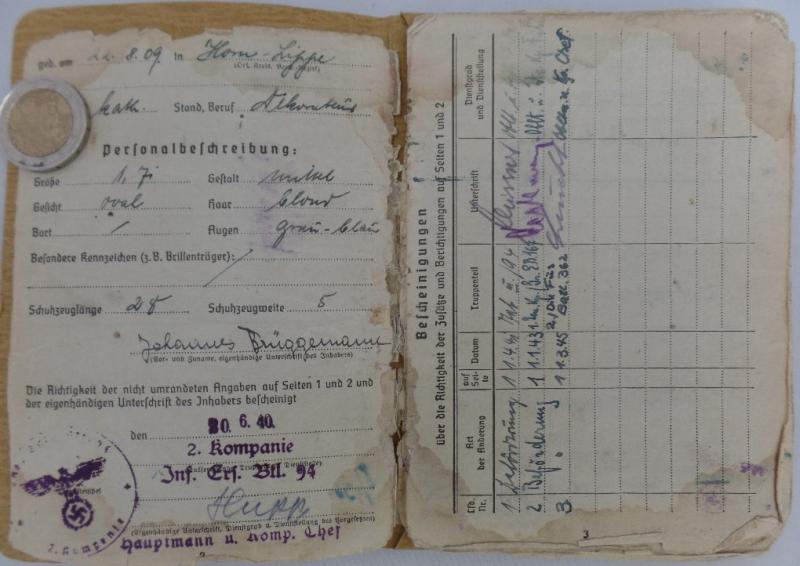 geb. am 22. 8. 09. in Horn-Lippe
(Ort, Kreis, Verw.-Bezirk)
kath. Stand, Beruf Dekorateur
Personalbeschreibung:
Größe 1,7 Gestalt mittel
Gesicht oval Haar blond
Bart / Augen grau-blau
Besondere Kennzeichen (z. B. Brillenträger):
Schuhzeuglänge 28 Schuhzeugweite 5
Johannes Brüggemann
(Vor- und Zuname, eigenhändige Unterschrift des Inhabers)
Die Richtigkeit der nicht umrandeten Angaben auf Seiten 1 und 2 und
der eigenhändigen Unterschrift des Inhabers bescheinigt
den 20. 6. 40.
2. Kompanie
Inf. Ers. Btl. 94
Hupp
(Eigenhändige Unterschrift, Dienstgrad u. Dienststellung des Vorgesetzten)
Hauptmann u. Komp. Chef
2. Kompanie
Bescheinigungen
über die Richtigkeit der Zusätze und Berichtigungen auf Seiten 1 und 2
Lfd. Nr. Art der Änderung auf Seite Datum Truppenteil Unterschrift Dienstgrad und Dienststellung
1 Beförderung 1 1.4.41
2 Beförderung 1 1.1.43
3 " 1 1.3.45 2/Div. Füs. Batl. 362
3